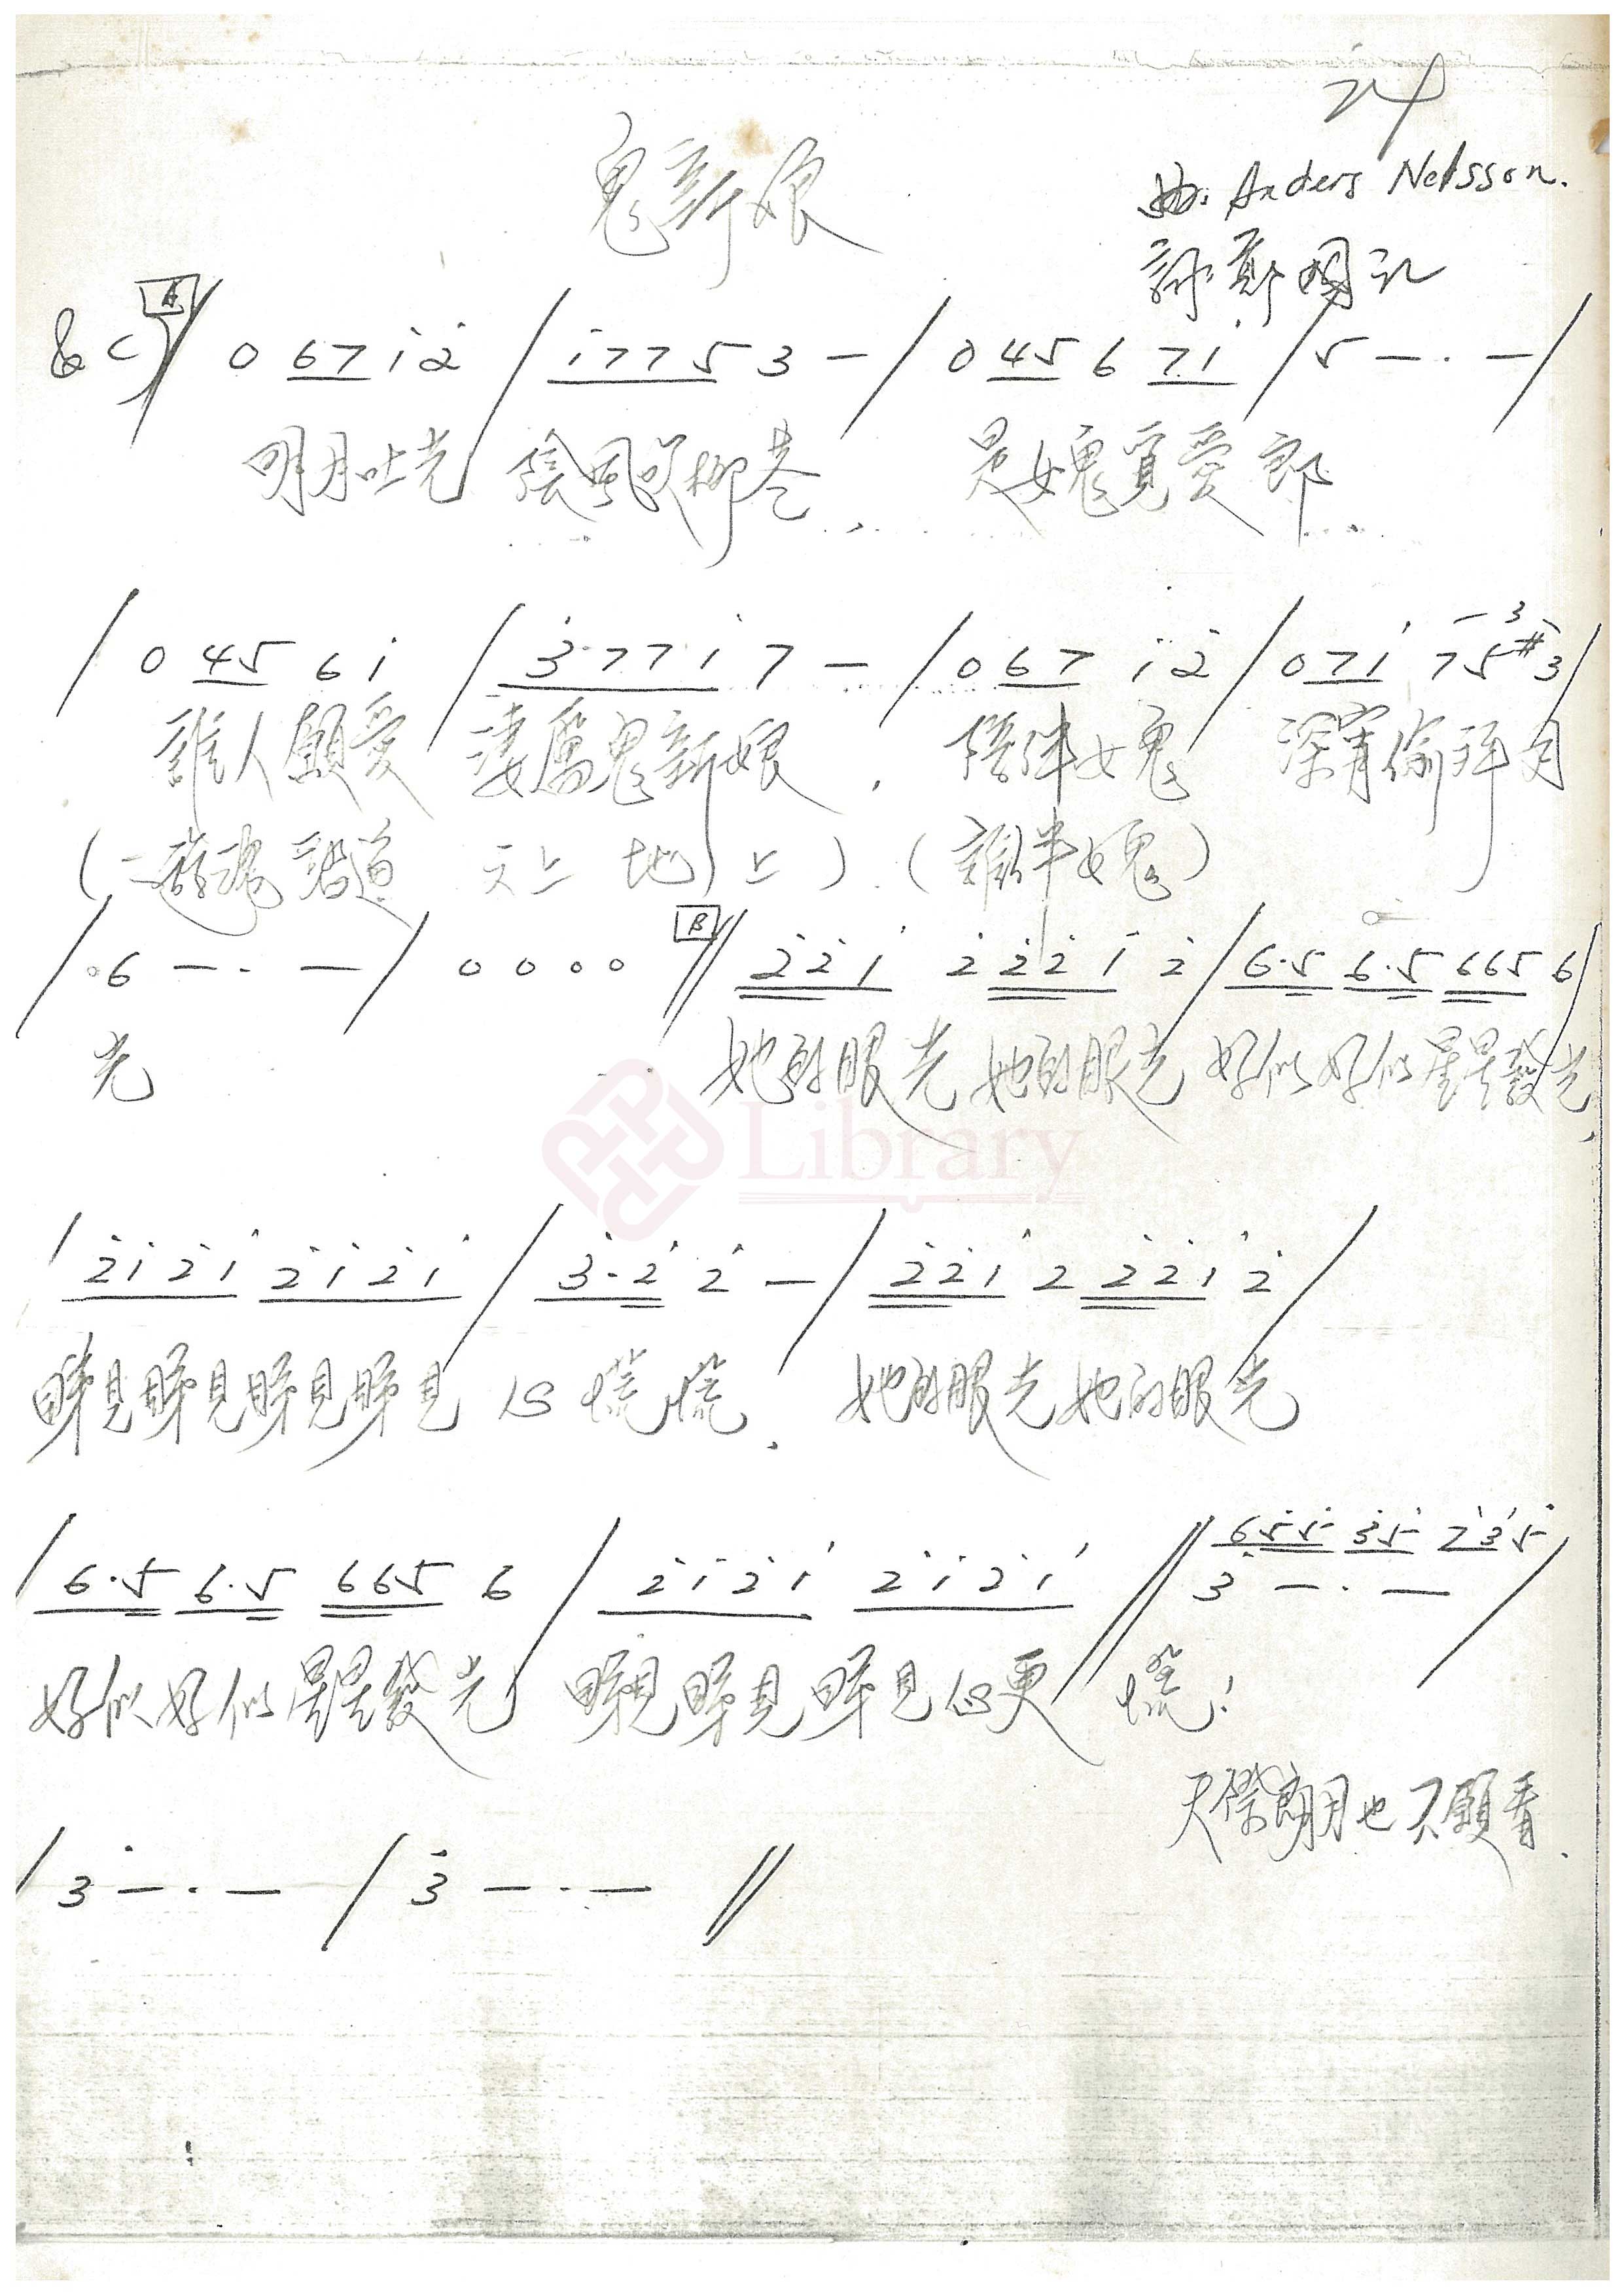 24
鬼新娘
曲: Anders Nelsson.
詞: 鄭國江
A
C / 0 67 i 2̇ / i775 3 – / 0 45 6 7i / 5 – · – /
明月吐光 陰風吹柳巷 是女鬼覓愛郎
/ 0 45 6 i / 3̇·77i 7 – / 0 67 i 2̇ / 0 7i 75#3 /
誰人願愛 淒厲鬼新娘, 陪伴女鬼 深宵偷拜月
( 遊魂 踏遍 天上 地上 ) (誰伴女鬼)
/ 6 – · – / 0 0 0 0 // B 2̇2̇i 2̇ 2̇2̇i 2̇ / 6·5 6·5 665 6 /
光 她的眼光她的眼光 好似好似星星發光,
/ 2̇i2̇i 2̇i2̇i / 3̇·2̇ 2̇ – / 2̇2̇i 2 2̇2̇i 2̇ /
睇見睇見睇見睇見 心慌慌. 她的眼光她的眼光
/ 6·5 6·5 665 6 / 2̇i2̇i 2̇i2̇i // 3̇ – · – /
好似好似星星發光 睇見睇見睇見心更 慌!
天際朗月也不願看.
/ 3̇ – · – / 3̇ – · – //
Library